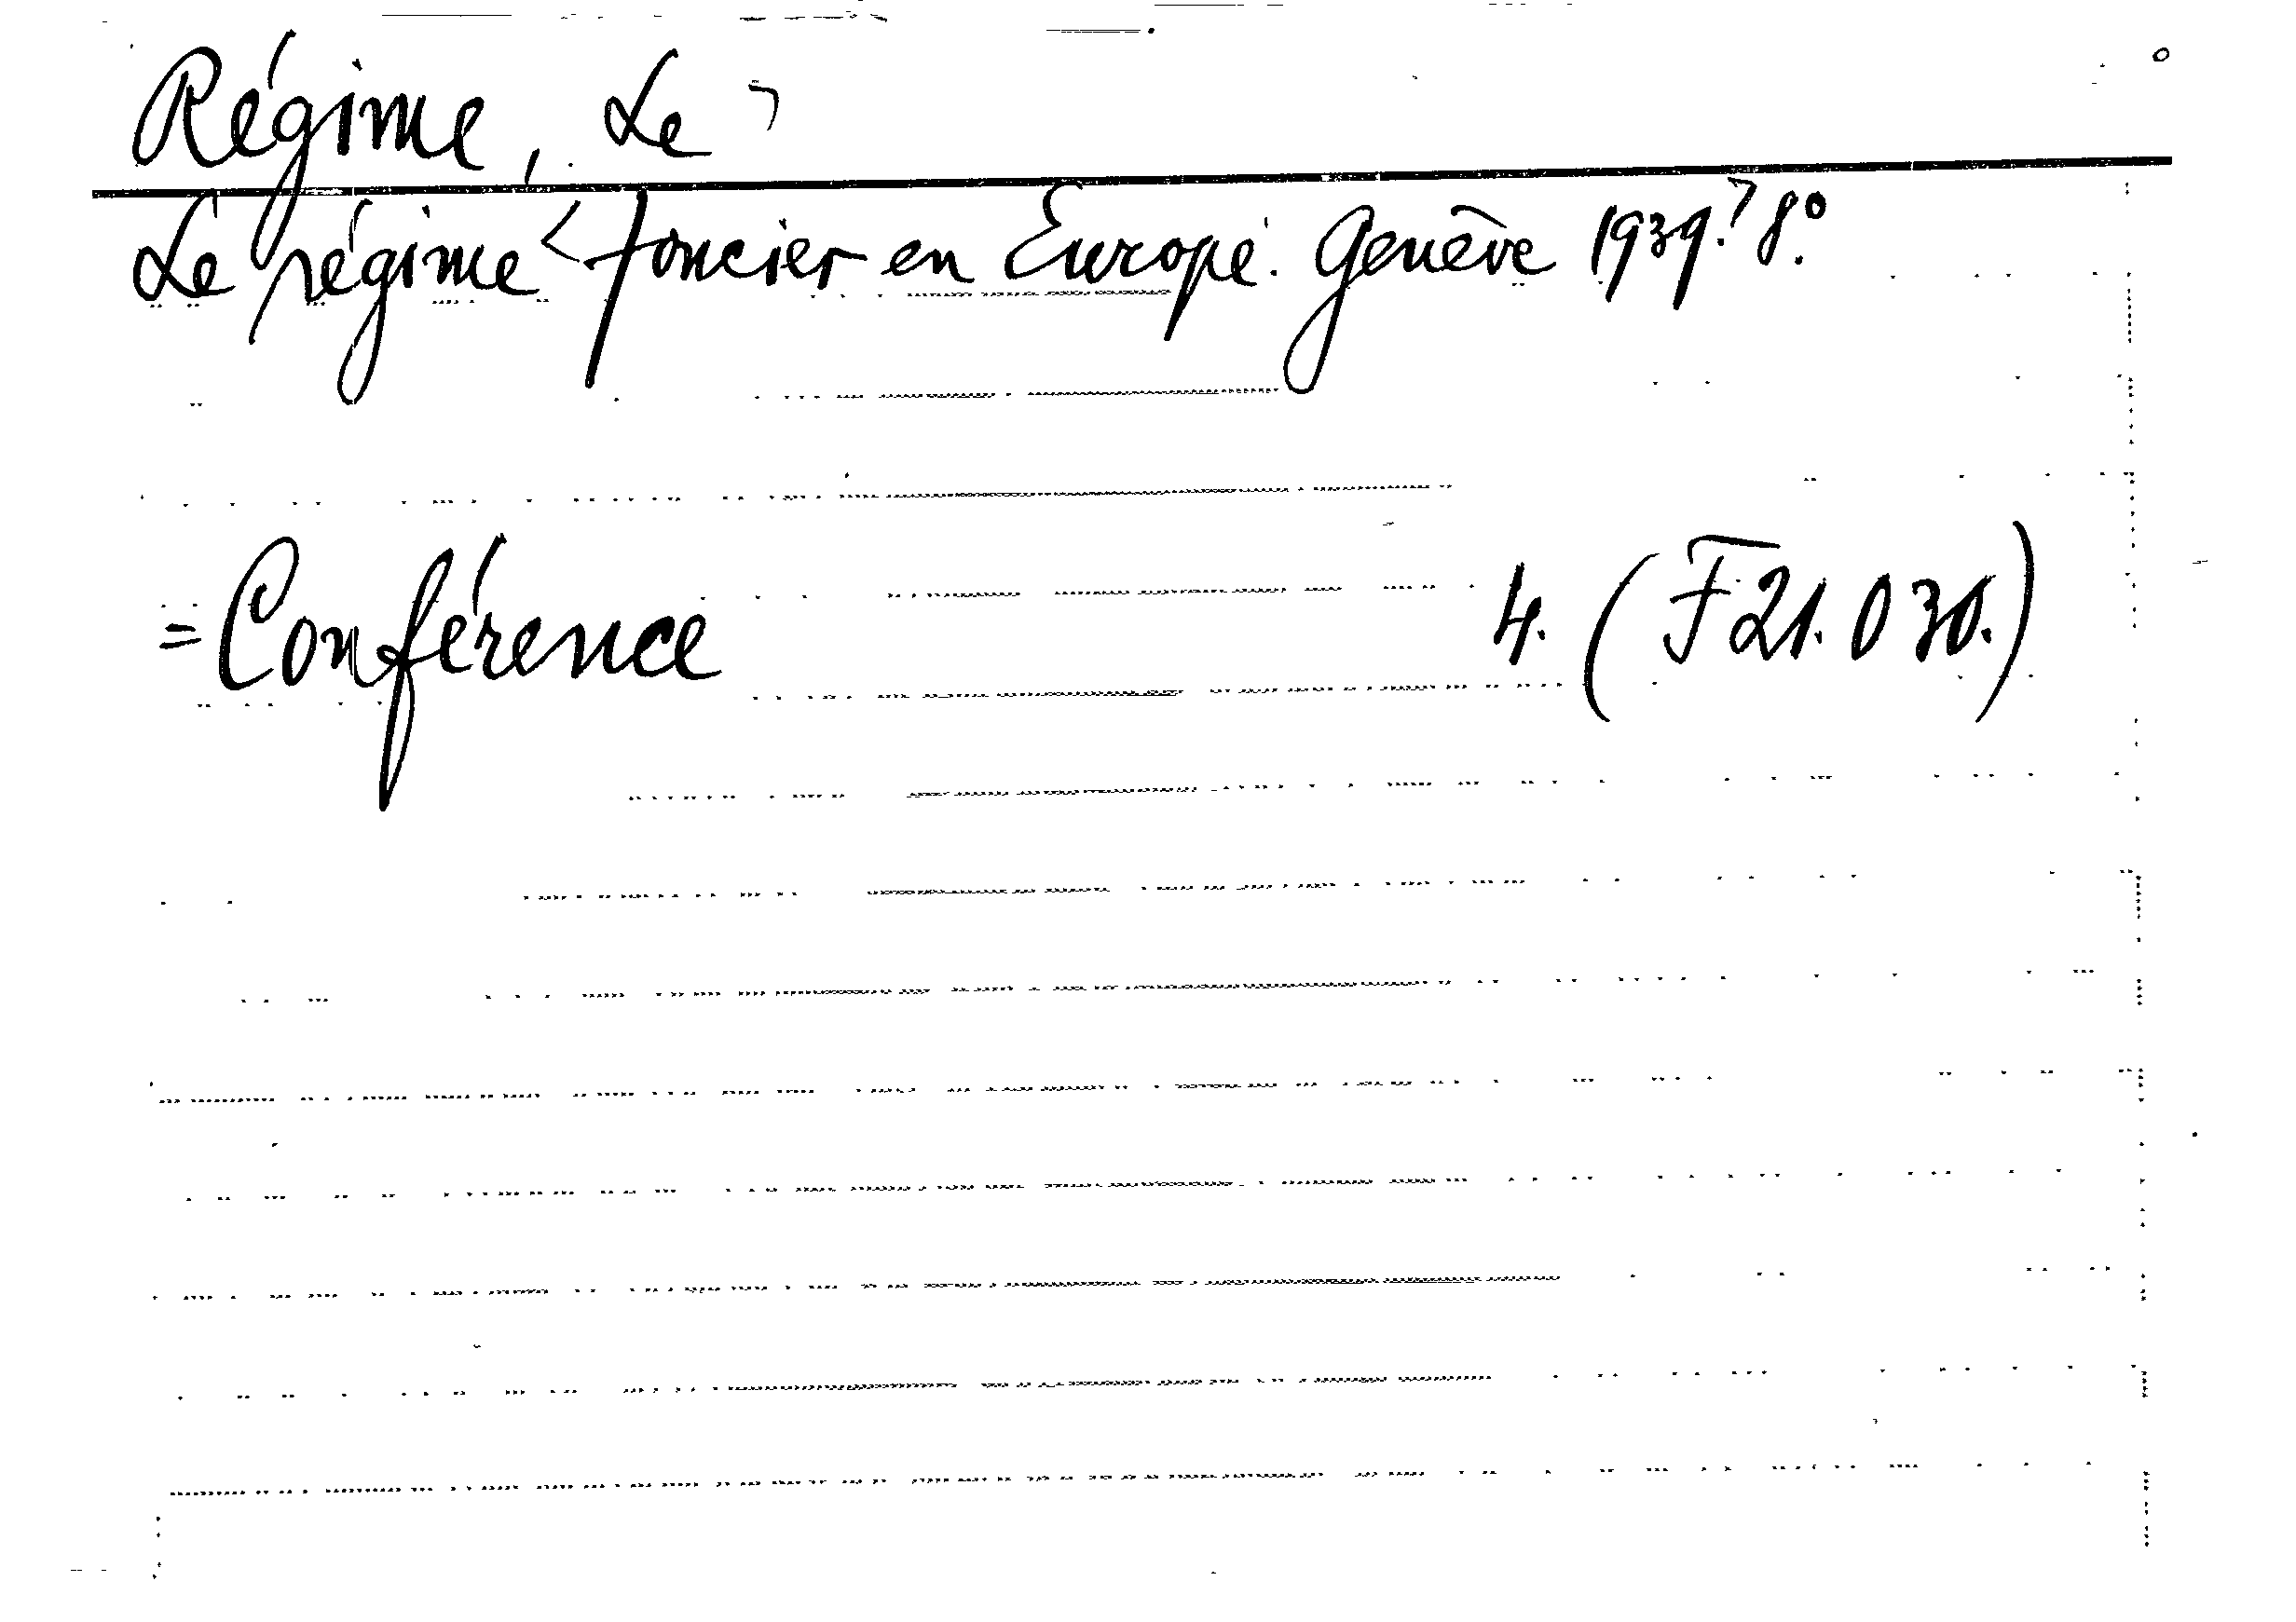 Régime, Le >
Le régime < foncier en Europe. Genève 1939.? 8.°
= Conférence 4. (F 21.030.)